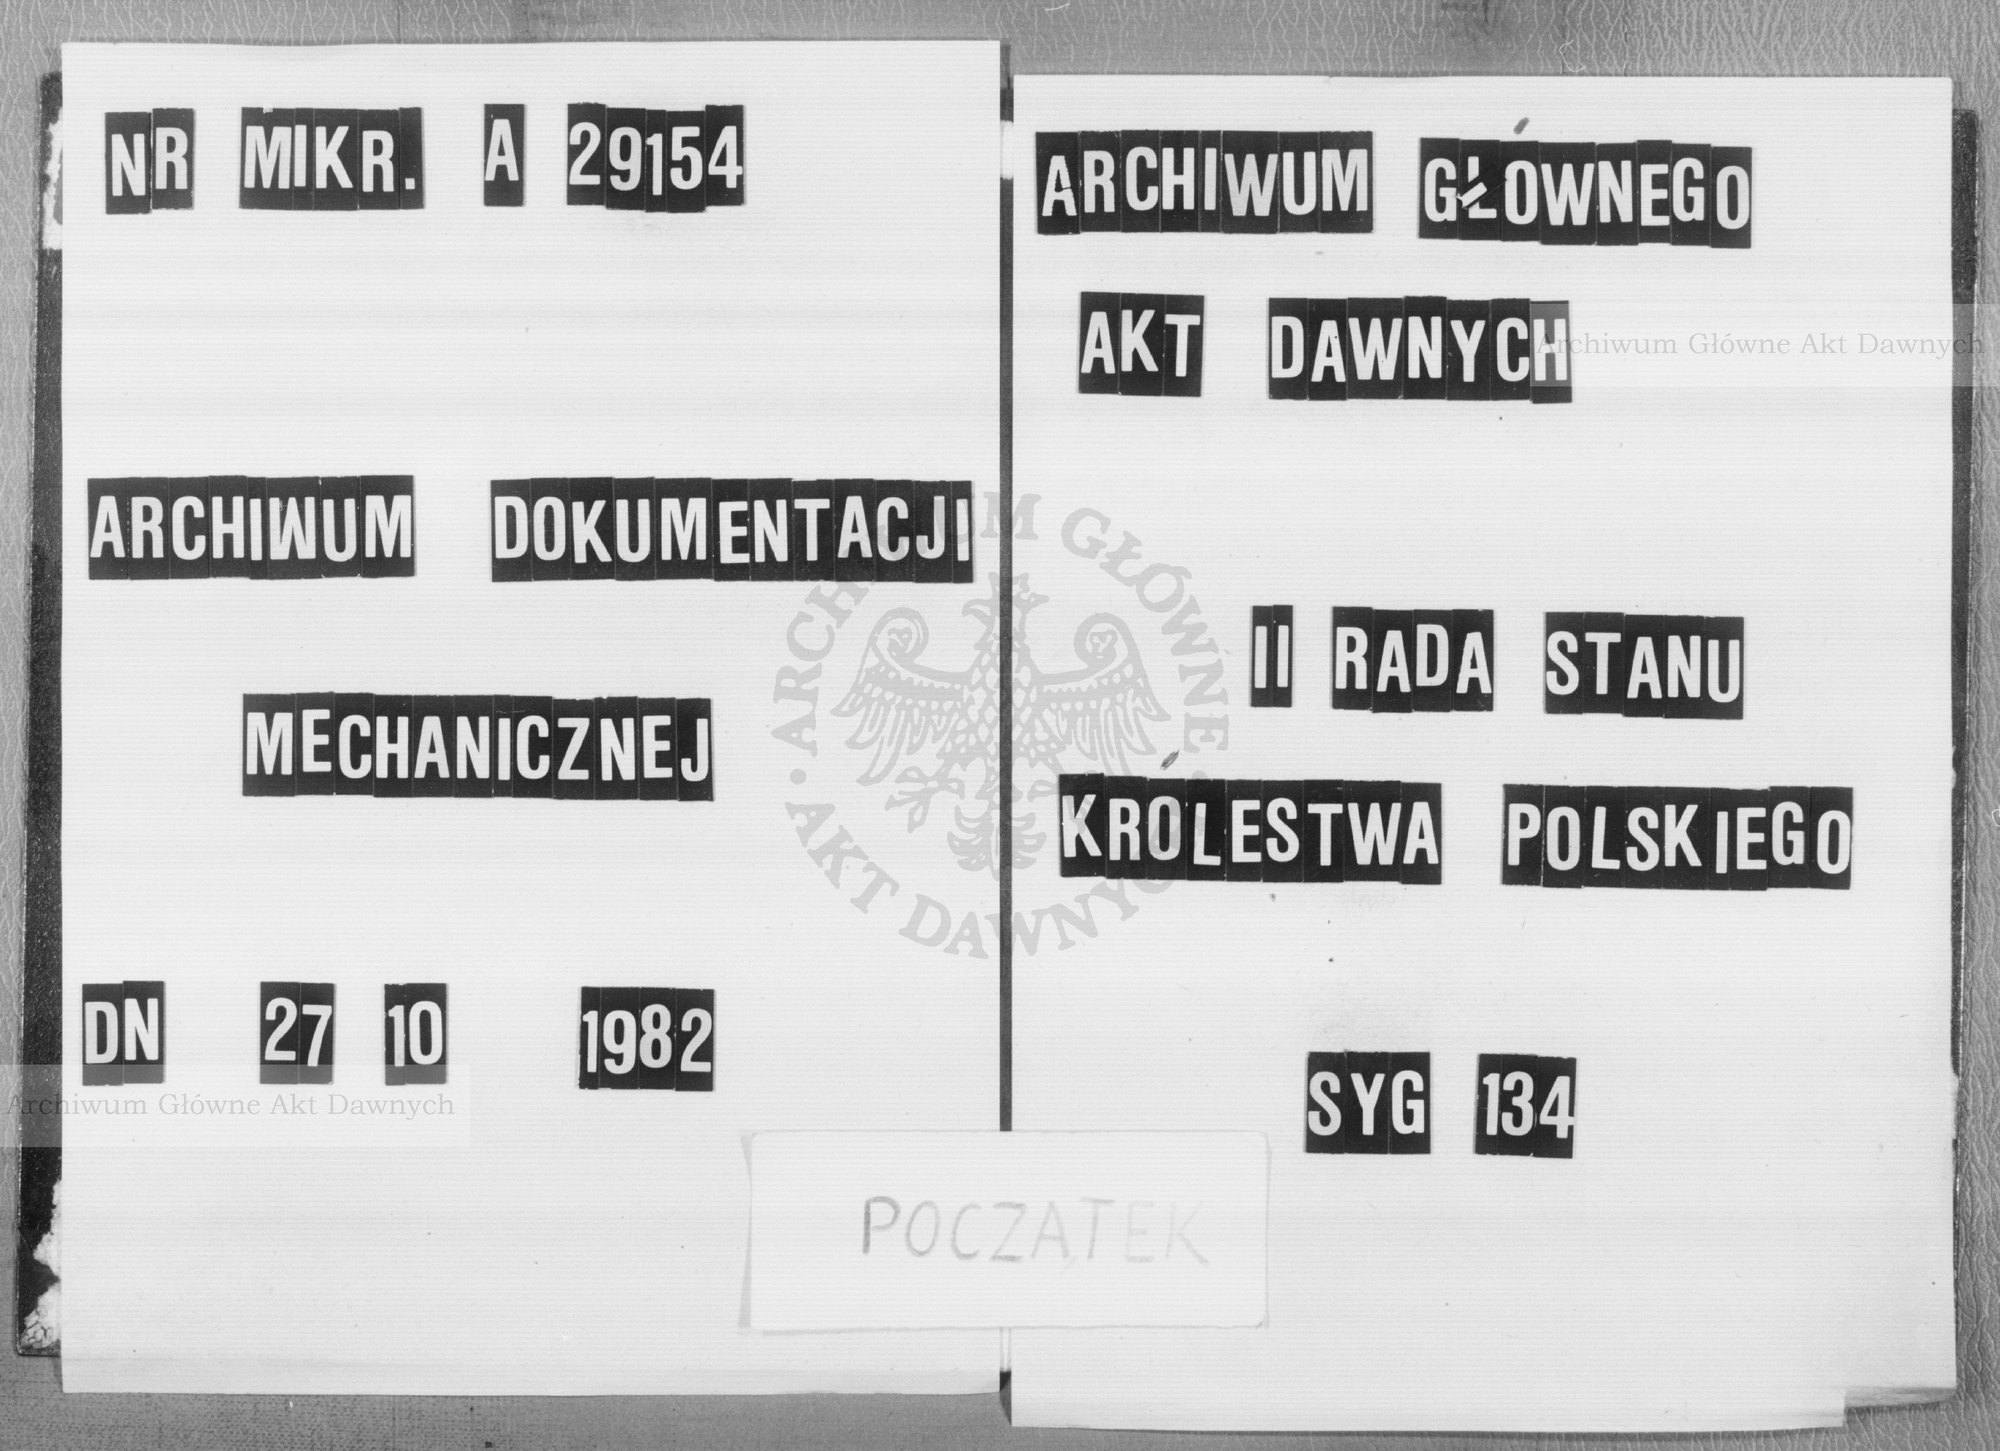 NR MIKR. A 29154
ARCHIWUM DOKUMENTACJI
MECHANICZNEJ
DN 27 10 1982
ARCHIWUM GŁÓWNEGO
AKT DAWNYCH
II RADA STANU
KRÓLESTWA POLSKIEGO
SYG 134
POCZĄTEK
Archiwum Główne Akt Dawnych
Archiwum Główne Akt Dawnych
ARCHIWUM GŁÓWNE
AKT DAWNYCH